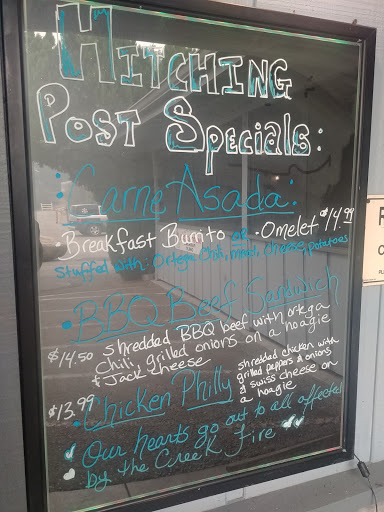 Hitching
Post Specials:
• Carne Asada:
Breakfast Burrito or • Omelet $14.99
Stuffed with: Ortega Chili, meat, cheese, potatoes
• BBQ Beef Sandwich
$14.50 shredded BBQ beef with ortega
chili, grilled onions on a hoagie
& Jack Cheese
$13.99 • Chicken Philly shredded chicken with
grilled peppers & onions
& swiss cheese on
a hoagie
Our hearts go out to all affected
by the Creek Fire